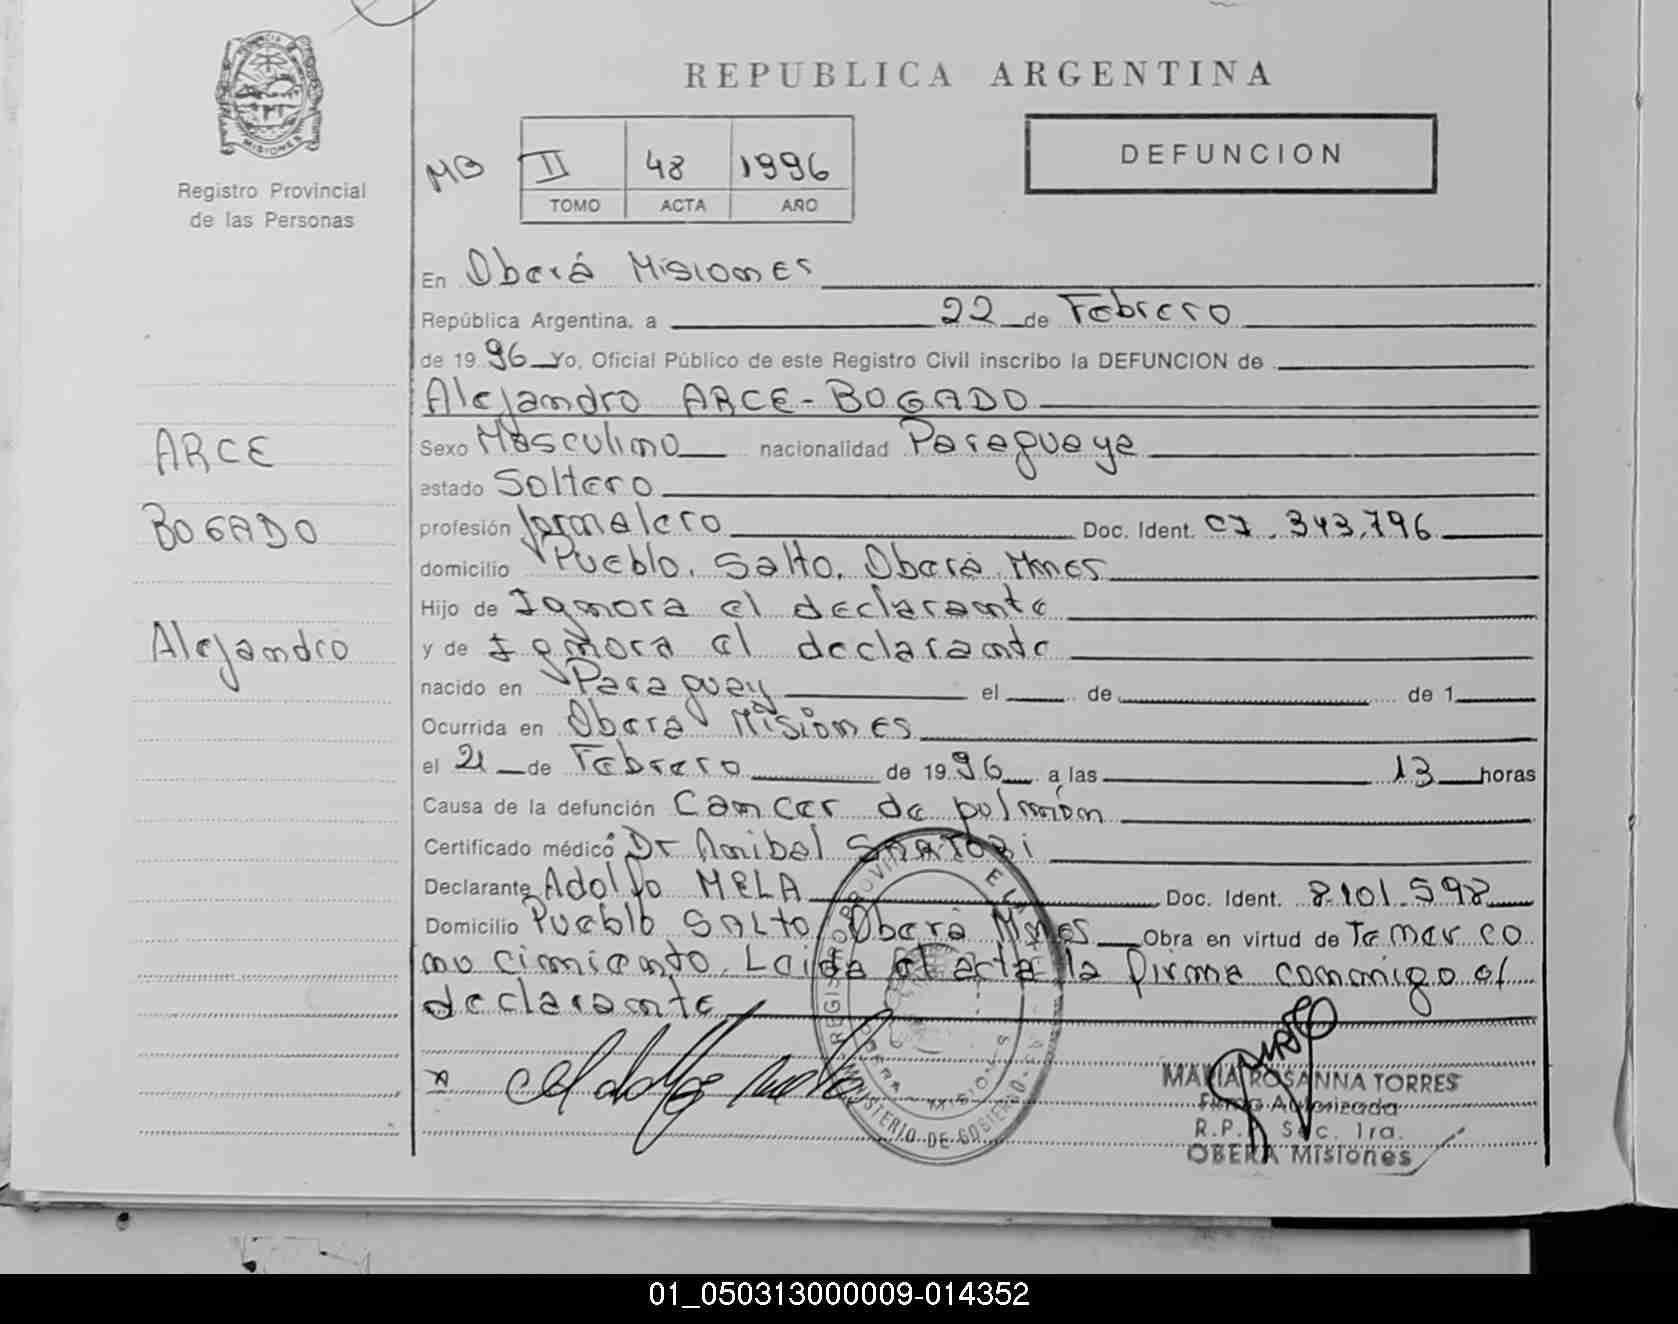 REPUBLICA ARGENTINA
PROVINCIA DE
MISIONES
Registro Provincial
de las Personas
MB
II 48 1996
TOMO ACTA AÑO
DEFUNCION
En Oberá Misiones
República Argentina, a 22 de Febrero
de 1996 Yo, Oficial Público de este Registro Civil inscribo la DEFUNCION de
Alejandro ARCE-BOGADO
Sexo Masculino nacionalidad Paraguaya
estado Soltero
profesión Jornalero Doc. Ident. CI. 343.796
domicilio Pueblo. Salto. Oberá Mnes
Hijo de Ignora el declarante
y de Ignora el declarante
nacido en Paraguay el de de 1
Ocurrida en Oberá Misiones
el 21 de Febrero de 1996 a las 13 horas
Causa de la defunción Cancer de pulmón
Certificado médico Dr Anibal
Declarante Adolfo MELA Doc. Ident. 8.101.598
Domicilio Pueblo SALTO, Oberá Mnes Obra en virtud de Tener co
no cimiento. Leida el acta la firma conmigo el
declarante
ARCE
BOGADO
Alejandro
REGISTRO PROVINCIAL DE LAS
OBERA - MISIONES
MINISTERIO DE GOBIERNO
MARIA ROSANNA TORRES
Firma Autorizada
R.P. Sec. 1ra.
OBERA Misiones
01_050313000009-014352